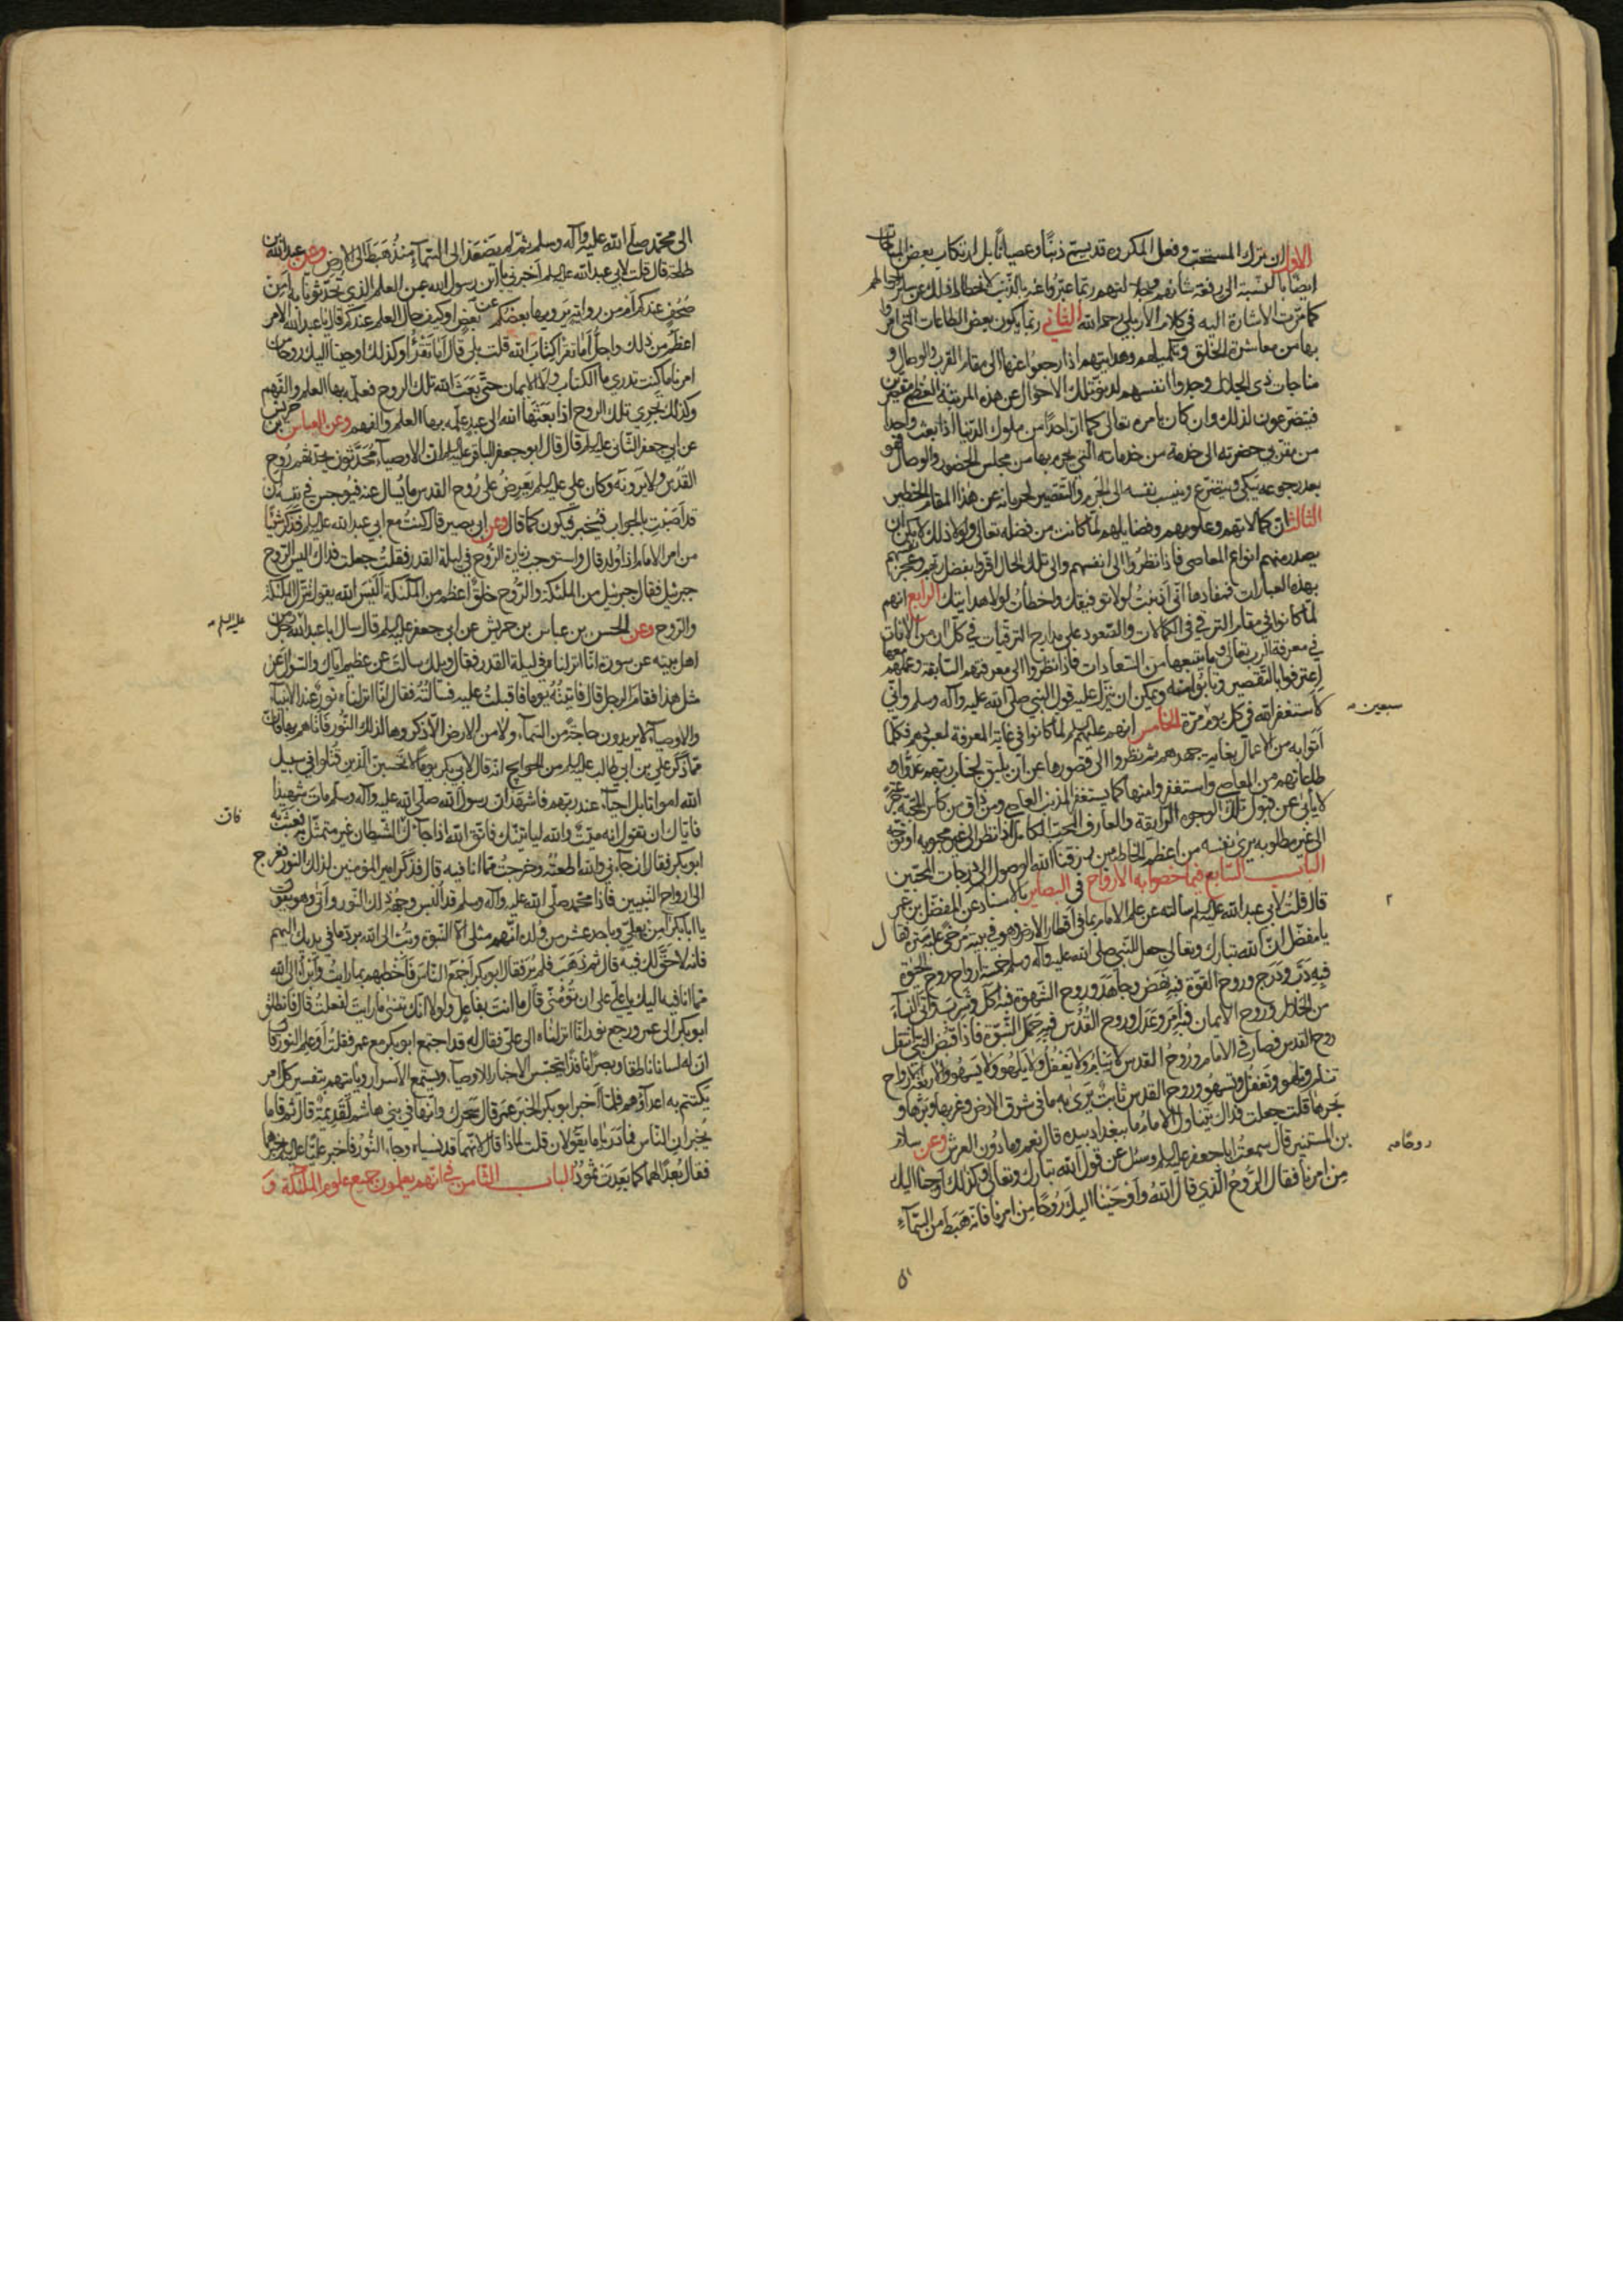 الاول ان ترك المستحب وفعل المكروه قد يسمّى ذنبًا وعصيانًا بل ارتكاب بعض المباحات
ايضًا بالنسبة الى رفعة شانهم وجلالتهم ربّما عبّروا عنه بالذنب لانحطاط ذلك عن ساير احوالهم
كما مرّت الاشارة اليه في كلام الاربلي رحمه الله الثاني ربّما يكون بعض الطاعات التي امروا
بها من معاشرة الخلق وتكميلهم وهدايتهم اذا رجعوا عنها الى مقام القرب والوصال و
مناجات ذي الجلال وجدوا انفسهم لدنوّ تلك الاحوال عن هذه المرتبة العظمى مقصرين
فيتضرعون لذلك وان كان بامره تعالى كما انّ احدًا من ملوك الدنيا اذا بعث واحدا
من مقرّبي حضرته الى خدمة من خدماته التي يحرم بها من مجلس الحضور والوصال فهو
بعد رجوعه يبكي ويتضرّع وينسب نفسه الى الجرم والتقصير لحرمانه عن هذا المقام الخطير
الثالث انّ كمالاتهم وعلومهم وفضايلهم لمّا كانت من فضله تعالى ولولا ذلك لامكن ان
يصدر منهم انواع المعاصي فاذا نظروا الى انفسهم والى تلك الحال اقرّوا بفضل ربّهم وعجز نفسهم
بهذه العبارات فمفادها انّي اذنبت لولا توفيقك واخطأت لولا هدايتك الرابع انهم
لمّا كانوا في مقام الترقي في الكمالات والصعود على مدارج الترقيات في كلّ ان من الانات
في معرفة الربّ تعالى وما يتبعها من السعادات فاذا نظروا الى معرفتهم السابقة وعملهم معها
اعترفوا بالتقصير وتابوا منه ويمكن ان ينزّل عليه قول النبي صلى الله عليه وآله وسلم وانّي
لاستغفر الله في كل يوم مرّة الخامس انهم عليهم لمّا كانوا في غاية المعرفة لمعبودهم فكلّما
سبعين
أتوا به من الاعمال بغاية جهدهم ثم نظروا الى قصورها عن ان يليق بجناب ربّهم عدّوا
طاعاتهم من المعاصي واستغفروا منها كما يستغفر المذنب العاصي ومن ذاق من كأس المحبّة جرعة
لا يأبى عن قبول تلك الوجوه الرايقة والعارف المحبّ الكامل اذا نظر الى غير محبوبه او توجّه
الى غير مطلوبه يرى نفسه من اعظم الخاطئين رزقنا الله الوصول الى درجات المحبّين
الباب السابع فيما خصّوا به الارواح في البصائر بالاسناد عن المفضّل بن عمر
قال قلت لابي عبد الله عليه السلم سالته عن علم الامام بما في اقطار الارض وهو في بيته مرخى عليه ستره فقال
يا مفضّل انّ الله تبارك وتعالى جعل للنبي صلى الله عليه وآله وسلم خمسة ارواح روح الحيوة
فيه دبّ ودرج وروح القوة فيه نهض وجاهد وروح الشهوة فيه اكل وشرب وأتى النساء
من الحلال وروح الايمان فبه امر وعدل وروح القدس فبه حمل النبوّة فاذا قبض النبي انتقل
روح القدس فصار في الامام وروح القدس لا ينام ولا يغفل ولا يلهو ولا يسهو والاربعة الارواح
تنام وتلهو وتغفل وتسهو وروح القدس ثابت يرى به ما في شرق الارض وغربها وبرّها و
بحرها قلت جعلت فداك يتناول الامام ما ببغداد بيده قال نعم وما دون العرش وعن سلام
بن المستنير قال سمعت ابا جعفر عليه السلم وسئل عن قول الله تبارك وتعالى وكذلك اوحينا اليك
روحًا
من امرنا فقال الروح الذي قال الله واوحينا اليك روحًا من امرنا فانّه هبط من السماء
الى محمّد صلى الله عليه وآله وسلم ثم لم يصعد الى السماء منذ هبط الى الارض وعن عبد الله بن
طلحة قال قلت لابي عبد الله عليه السلم اخبرني يا ابن رسول الله عن العلم الذي تحدّثونا به امن
صحف عندكم ام من رواية يرويها بعضكم عن بعض او كيف حال العلم عندكم قال يا عبد الله الامر
اعظم من ذلك واجلّ اما تقرأ كتاب الله قلت بلى قال اما تقرأ وكذلك اوحينا اليك روحا من
امرنا ما كنت تدري ما الكتاب ولا الايمان حتى بعث الله تلك الروح فعلّمه بها العلم والفهم
وكذلك تجري تلك الروح اذا بعثها الله الى عبد علّمه بها العلم والفهم وعن العباس بن حريش
عن ابي جعفر الثاني عليه السلم قال قال ابو جعفر الباقر عليه السلم انّ الاوصياء محدّثون يحدّثهم روح
القدس ولا يرونه وكان علي عليه السلم يعرض على روح القدس ما يسأل عنه فيوجس في نفسه ان
قد اصبت بالجواب فيخبر فيكون كما قال وعن ابي بصير قال كنت مع ابي عبد الله عليه السلم فذكر شيئًا
من امر الامام اذا ولد قال واستوجب زيارة الروح في ليلة القدر فقلت جعلت فداك اليس الروح
جبرئيل فقال جبرئيل من الملئكة والروح خلق اعظم من الملئكة اليس الله يقول تنزّل الملئكة
والروح وعن الحسن بن عباس بن حريش عن ابي جعفر عليه السلم قال سال ابا عبد الله رجل من
عليه السلم
اهل بيته عن سورة انّا انزلناه في ليلة القدر فقال ويلك سالت عن عظيم اياك والسؤال عن
مثل هذا فقام الرجل قال فاتيته يوما فاقبلت عليه فسالته فقال انّا انزلناه نور عند الانبياء
والاوصياء لا يريدون حاجة من السماء ولا من الارض الا ذكروها لذلك النور فاتاهم بها فانّ
ممّا ذكر علي بن ابي طالب عليه السلم من الحوايج انه قال لابي بكر يوما لا تحسبن الذين قتلوا في سبيل
الله امواتا بل احياء عند ربهم فاشهد انّ رسول الله صلى الله عليه وآله وسلم مات شهيدا
فات
فايّاك ان تقول انه ميّت والله لياتينّك فاتّق الله اذا جاءك الشيطان غير متمثّل به فبعث به
ابو بكر فقال ان جاءني والله اطعته وخرجت ممّا انا فيه قال فذكر امير المؤمنين لذلك النور فعرج
الى ارواح النبيين فاذا محمد صلى الله عليه وآله وسلم قد البس وجهه ذلك النور وأتى وهو يقول
يا ابا بكر آمن بعلي وباحد عشر من ولده انّهم مثلي الا النبوّة وتب الى الله بردّ ما في يديك اليهم
فانه لا حقّ لك فيه قال ثم ذهب فلم ير فقال ابو بكر اجمع الناس فاخطبهم بما رايت وابرأ الى الله
ممّا انا فيه اليك يا علي على ان تؤمنني قال ما انت بفاعل ولولا انّك تنسى ما رايت لفعلت قال فانطلق
ابو بكر الى عمر ورجع نور انّا انزلناه الى علي فقال له قد اجتمع ابو بكر مع عمر فقلت أوعلم النور قال
انّ له لسانا ناطقا وبصرًا نافذًا يتجسّس الاخبار للاوصياء ويستمع الاسرار وياتيهم بتفسير كلّ امر
يكتتم به اعداؤهم فلمّا اخبر ابو بكر الخبر عمر قال سحرك وانّها في بني هاشم لقديمة قال ثم قاما
يخبران الناس فما دريا ما يقولان قلت لماذا قال لانّهما قد نسياه وجاء النور فاخبر عليّا عليه السلم خبرهما
فقال بعدًا لهما كما بعدت ثمود الباب الثامن في انّهم يعلمون جميع علوم الملئكة و